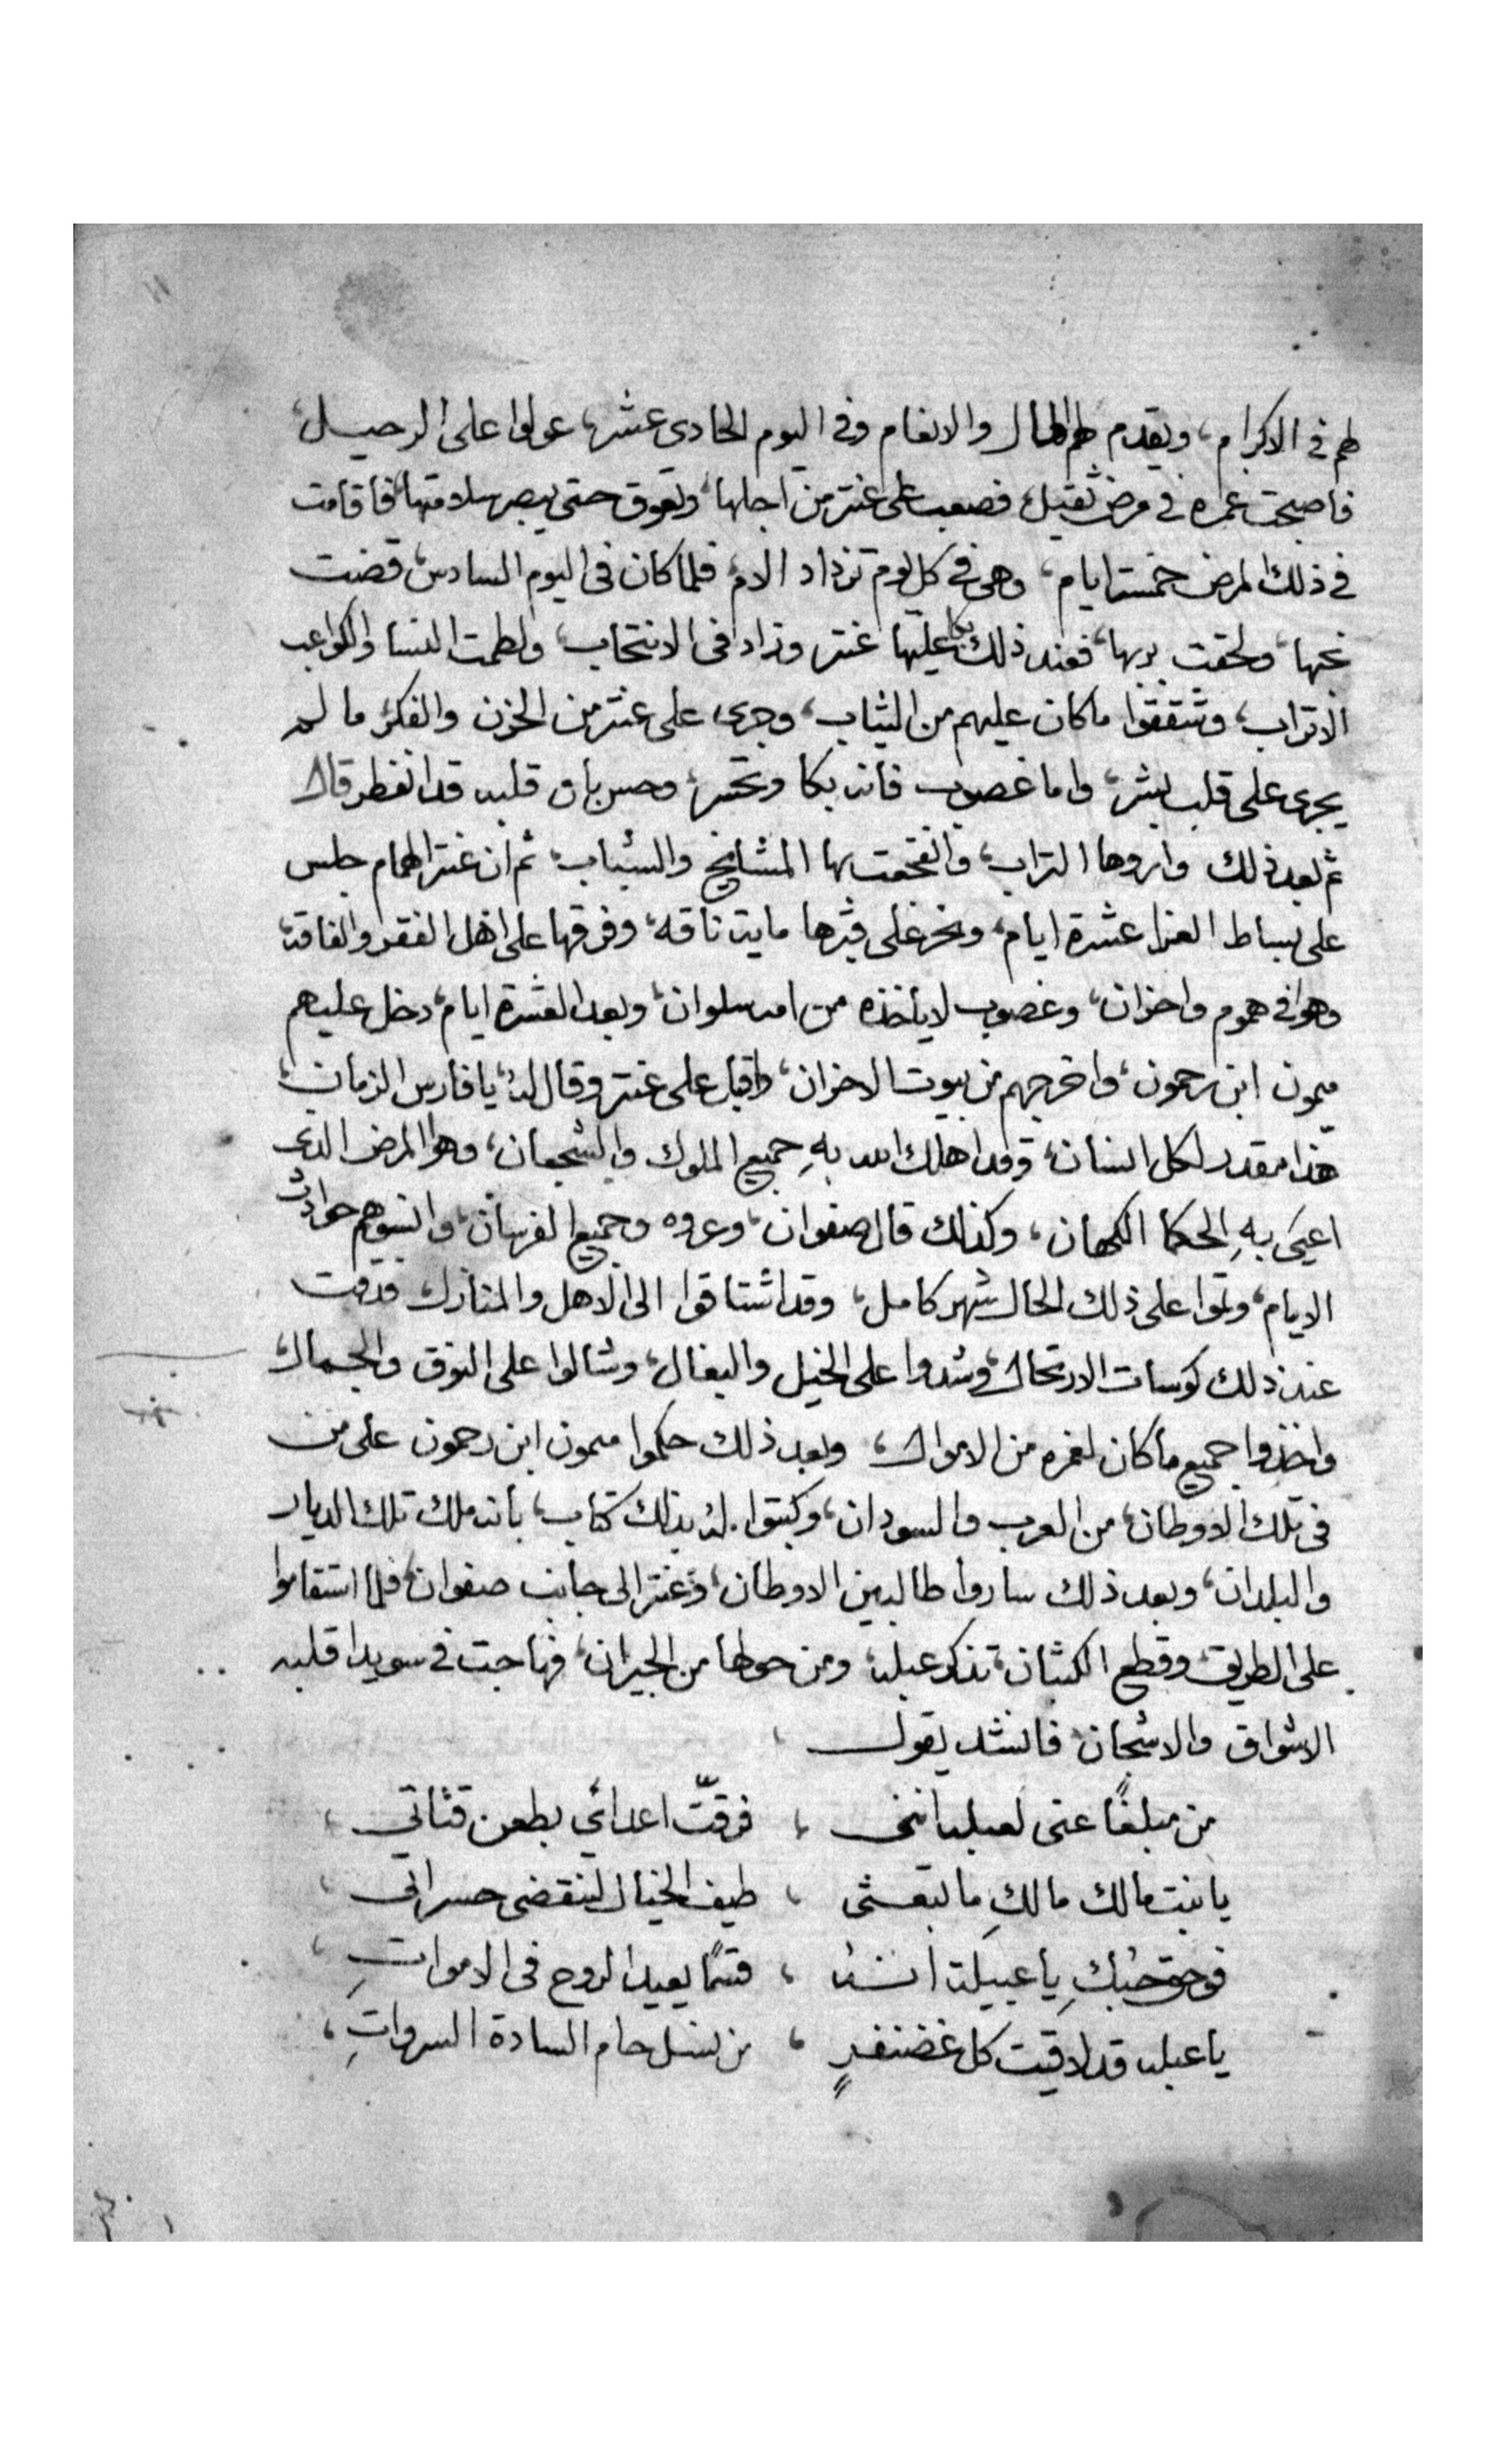 لهم في الاكرام، ويقدم لهم المال والانعام وفي اليوم الحادي عشر، عولوا على الرحيل،
فاصبحت غمره في مرض ثقيل، فصعب على عنتر من اجلها، وتعوق حتى يبصر سلامتها، فاقامت
في ذلك المرض خمسة ايام، وهي في كل يوم تزداد الام، فلما كان في اليوم السادس، قضت
نحبها، ولحقت بربها، فعند ذلك بكا عليها عنتر وزاد في الانتحاب، ولطمت النسا والكواعب
الاتراب، وشققوا ما كان عليهم من الثياب، وجرى على عنتر من الحزن والفكر، ما لم
يجرى على قلب بشر، واما غصوب فانه بكا وتحسر، وحس بان قلبه قد انفطر قال
ثم بعد ذلك واروها التراب، وانفجعت بها المشايخ والشباب، ثم ان عنتر الهمام جلس
على بساط العزا عشرة ايام، ونحر على قبرها ماية ناقه، وفرقها على اهل الفقر والفاقة،
وهو في هموم واحزان، وغصوب لا ياخذه من امه سلوان، وبعد العشرة ايام، دخل عليهم
ميمون ابن رحمون، واخرجهم من بيوت الاحزان، واقبل على عنتر وقال له، يا فارس الزمان،
هذا مقدر لكل انسان، وقد اهلك الله بهِ جميع الملوك والشجعان، وهو المرض الذي
اعيى بهِ الحكما الكهان، وكذلك قال صفوان، وعروه وجميع الفرسان، وانسوهم حوادث
الايام، وتموا على ذلك الحال شهر كامل، وقد اشتاقوا الى الاهل والمنازل، فدقت
عند ذلك كوسات الارتحال، وشدوا على الخيل والبغال، وشالوا على النوق والجمال،
واخذوا جميع ما كان لغمره من الاموال، وبعد ذلك حكموا ميمون ابن رحمون على من
في تلك الاوطان، من العرب والسودان، وكبتوا له بذلك كتاب، بانه ملك تلك الديار
والبلدان، وبعد ذلك ساروا طالبين الاوطان، وعنتر الى جانب صفوان، فلما استقاموا
على الطريق وقطع الكثبان، تذكر عبله، ومن حولها من الجيران، فهاجت في سويدا قلبه
الاشواق والاشجان، فانشد يقول،
من مبلغًا عني لعبله انني ، فرقتّ اعدائي بطعن قناتي،
يا بنت مالك مالكِ ما تبعثي ، طيف الخيال لتنقضي حسراتي،
فوحق حبكِ يا عبيلة انهُ ، قسمًا يعيد الروح في الامواتِ،
يا عبله قد لاقيت كل غضنفرٍ ، من نسل حام السادة السرواتِ،